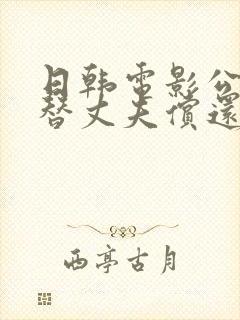 日韩電影公
替丈夫償還
西亭古月